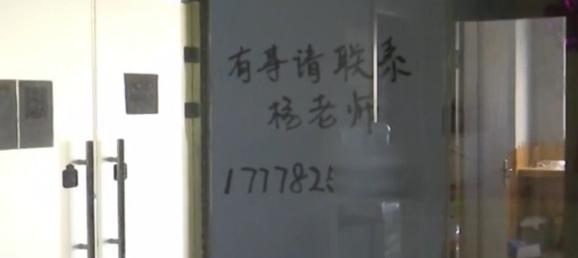 有事请联系
杨老师
1777825